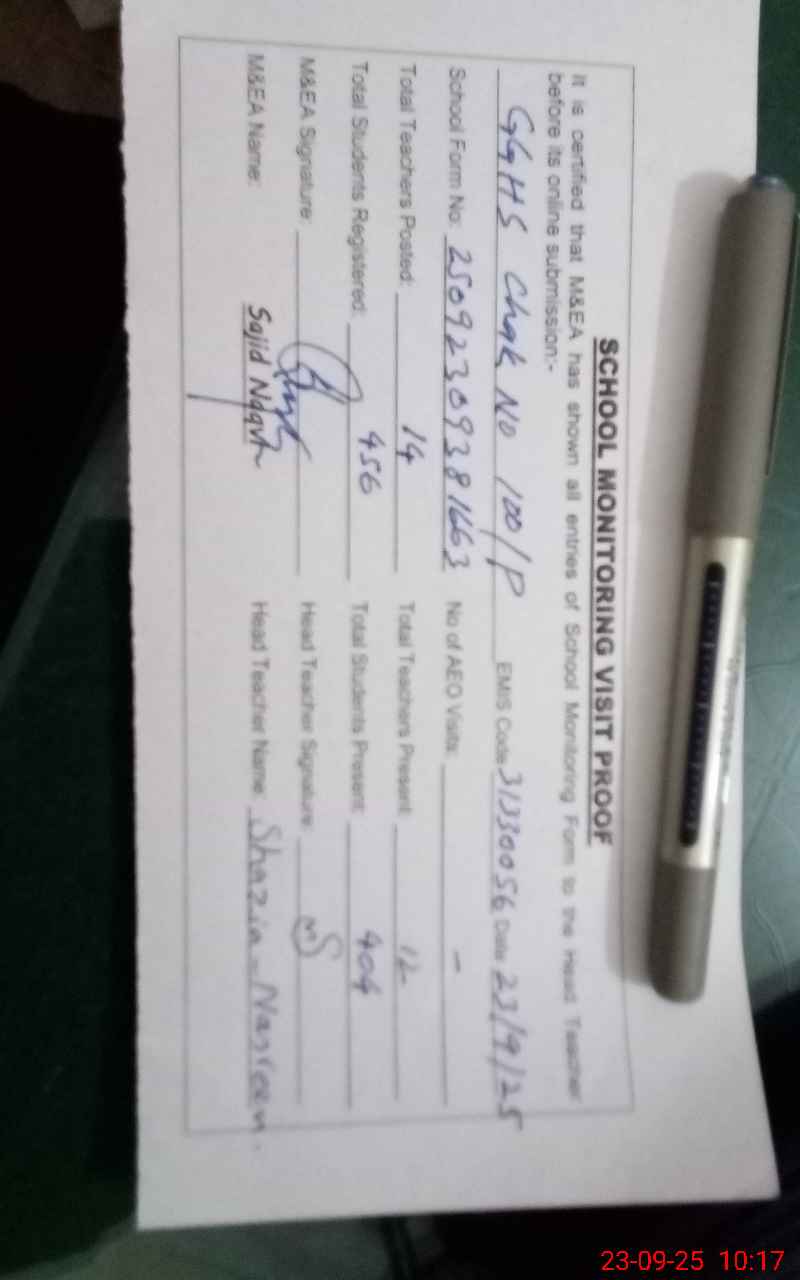 SCHOOL MONITORING VISIT PROOF
It is certified that M&EA has shown all entries of School Monitoring Form to the Head Teacher
before its online submission:-
GGHS Chak No 100/P EMIS Code 31330056 Date 23/9/25
School Form No: 25092309381663 No of AEO Visits: -
Total Teachers Posted: 14 Total Teachers Present: 12
Total Students Registered: 456 Total Students Present: 404
M&EA Signature: Head Teacher Signature:
M&EA Name: Sajid Naqvi Head Teacher Name: Shazia Nasreen.
23-09-25 10:17